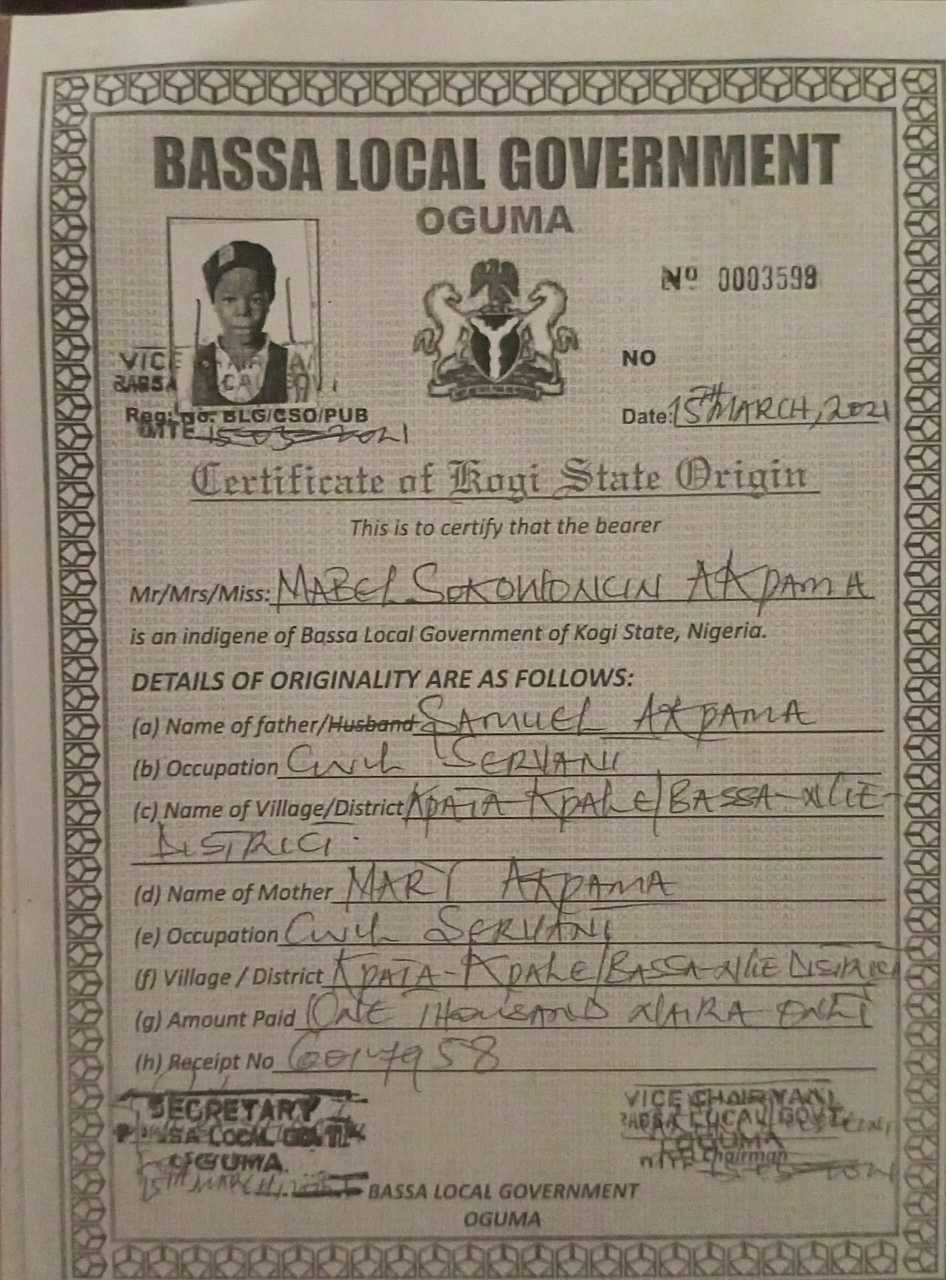 BASSA LOCAL GOVERNMENT
OGUMA
Nº 0003598
NO
VICE
BASSA LOCAL GOVT
Reg: No. BLG/CSO/PUB
DATE 15-03-2021
Date: 15TH MARCH, 2021
Certificate of Kogi State Origin
This is to certify that the bearer
Mr/Mrs/Miss: MABEL SOKOWONCIN AKPAMA
is an indigene of Bassa Local Government of Kogi State, Nigeria.
DETAILS OF ORIGINALITY ARE AS FOLLOWS:
(a) Name of father/Husband SAMUEL AKPAMA
(b) Occupation CIVIL SERVANT
(c) Name of Village/District KPATA-KPALE/BASSA-NGE-
DISTRICT.
(d) Name of Mother MARY AKPAMA
(e) Occupation CIVIL SERVANT
(f) Village / District KPATA-KPALE/BASSA-NGE DISTRICT
(g) Amount Paid ONE THOUSAND NAIRA ONLY
(h) Receipt No 6017958
SECRETARY
BASSA LOCAL GOVT
OGUMA.
15TH MARCH, 2021
VICE CHAIRMAN
BASSA LOCAL GOVT.
OGUMA
Chairman
DATE 15-03-2021
BASSA LOCAL GOVERNMENT
OGUMA